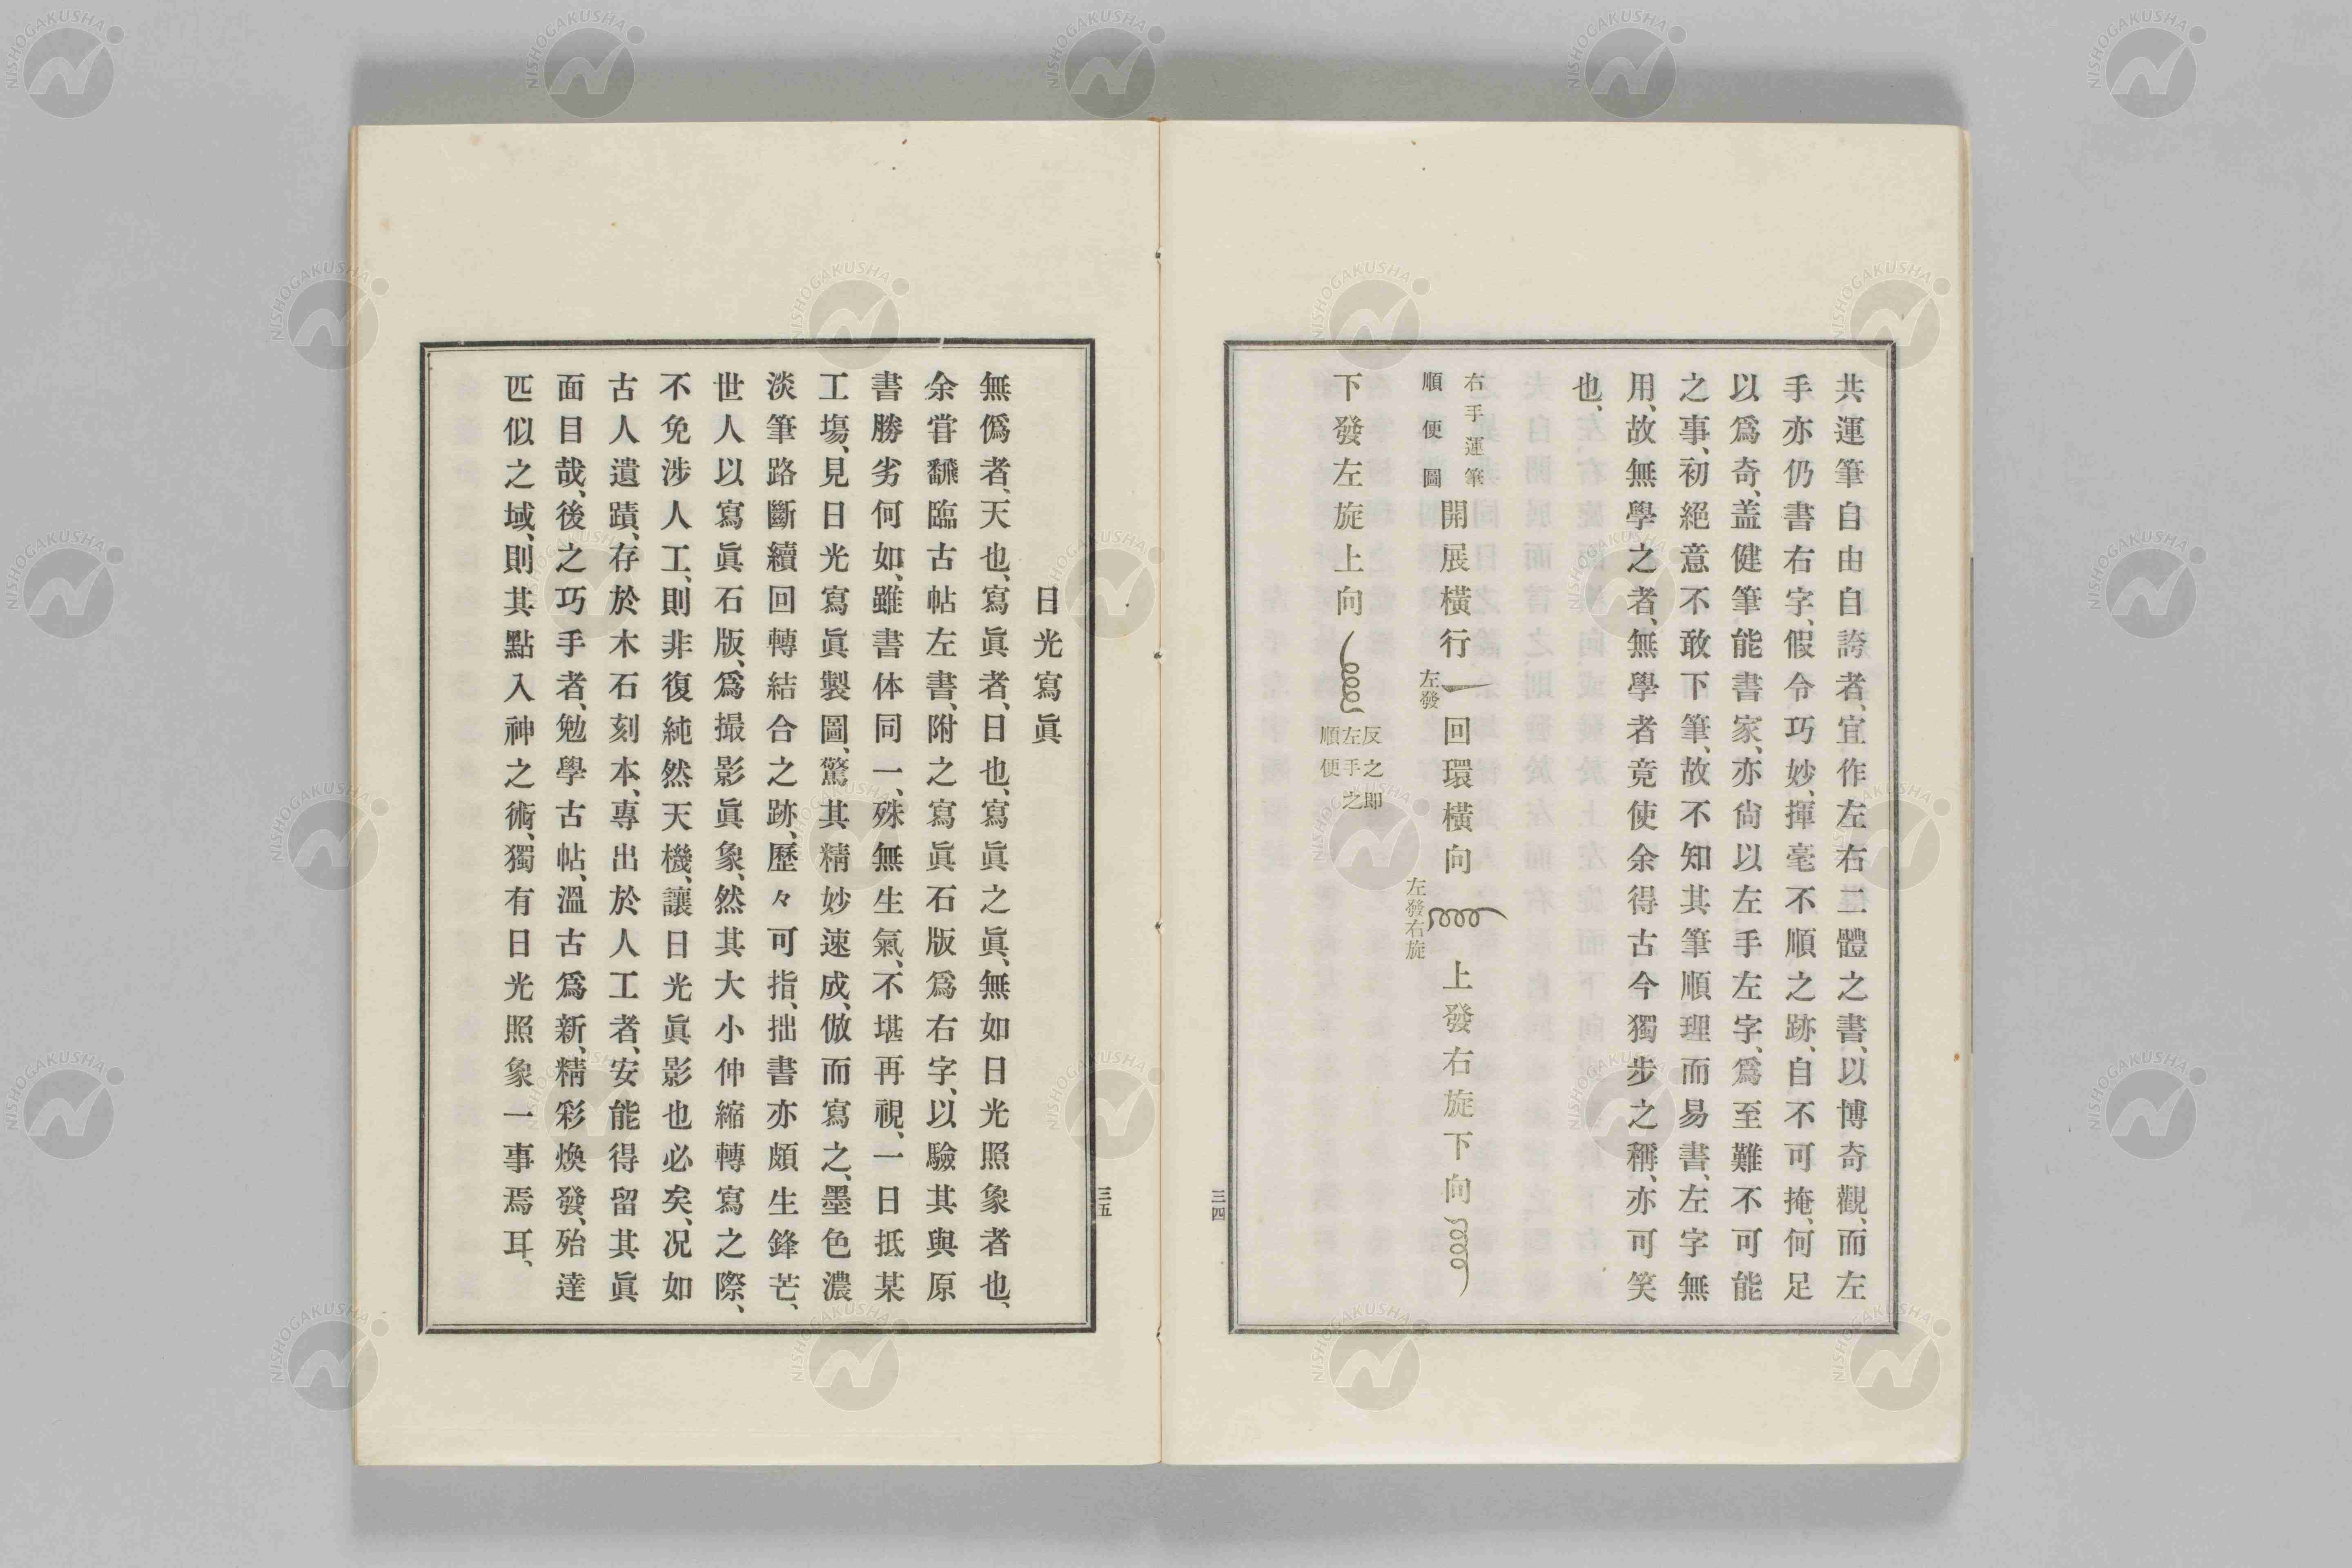 共運筆自由自誇者、宜作左右二體之書、以博奇觀、而左
手亦仍書右字、假令巧妙、揮毫不順之跡、自不可掩、何足
以爲奇、盖健筆能書家、亦尙以左手左字、爲至難不可能
之事、初絕意不敢下筆、故不知其筆順理而易書、左字無
用、故無學之者、無學者竟使余得古今獨步之稱、亦可笑
也、
右手運筆
順便圖
開展橫行
左發
回環橫向
左發右旋
上發右旋下向
下發左旋上向
反之即
左手之
順便
三四
日光寫眞
無僞者、天也、寫眞者、日也、寫眞之眞、無如日光照象者也、
余甞飜臨古帖左書、附之寫眞石版爲右字、以驗其與原
書勝劣何如、雖書体同一、殊無生氣、不堪再視、一日抵某
工塲、見日光寫眞製圖、驚其精妙速成、倣而寫之、墨色濃
淡筆路斷續回轉結合之跡、歷々可指、拙書亦頗生鋒芒、
世人以寫眞石版、爲撮影眞象、然其大小伸縮轉寫之際、
不免涉人工、則非復純然天機、讓日光眞影也必矣、况如
古人遺蹟、存於木石刻本、專出於人工者、安能得留其眞
面目哉、後之巧手者、勉學古帖、溫古爲新、精彩煥發、殆達
匹似之域、則其點入神之術、獨有日光照象一事焉耳、
三五
NISHOGAKUSHA